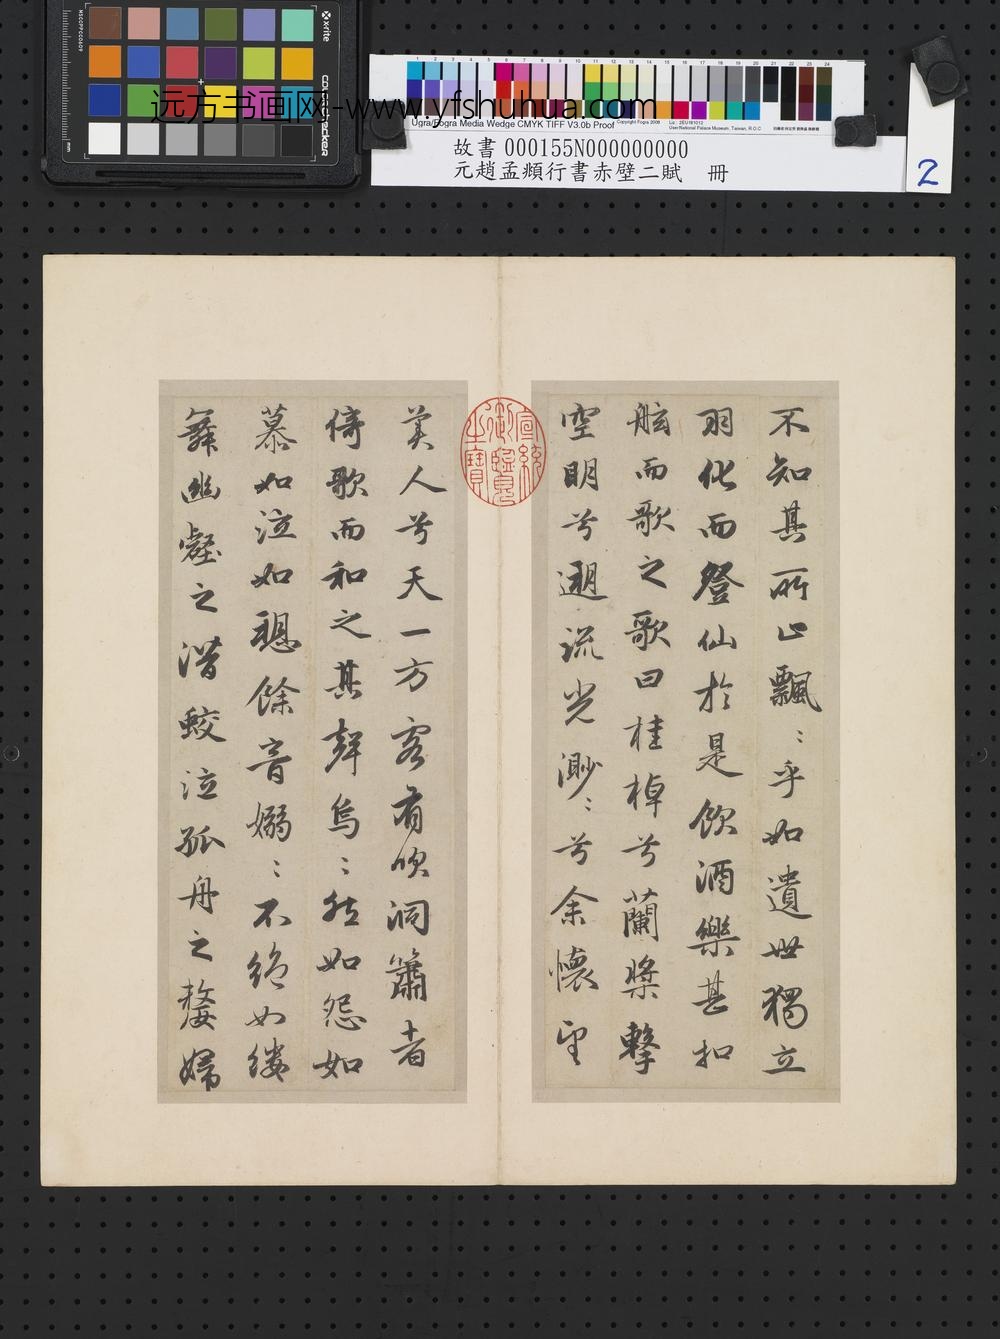 x·rite
colorchecker
MSCCPPCC0609
mm
远方书画网-www.yfshuhua.com
1 2 3 4 5 6 7 8 9 10 11 12 13 14 15 16 17 18 19 20 21 22 23 24
Ugra/Fogra Media Wedge CMYK TIFF V3.0b Proof
Copyright Fogra 2008
User:National Palace Museum, Taiwan, R.O.C
故書 000155N000000000
元趙孟頫行書赤壁二賦 冊
2
不知其所止飄〻乎如遺世獨立
羽化而登仙於是飲酒樂甚扣
舷而歌之歌曰桂棹兮蘭槳擊
空明兮遡流光渺〻兮余懷望
宣統御覽之寶
美人兮天一方客有吹洞簫者
倚歌而和之其聲烏〻然如怨如
慕如泣如愬餘音嫋〻不絕如縷
舞幽壑之潛蛟泣孤舟之嫠婦